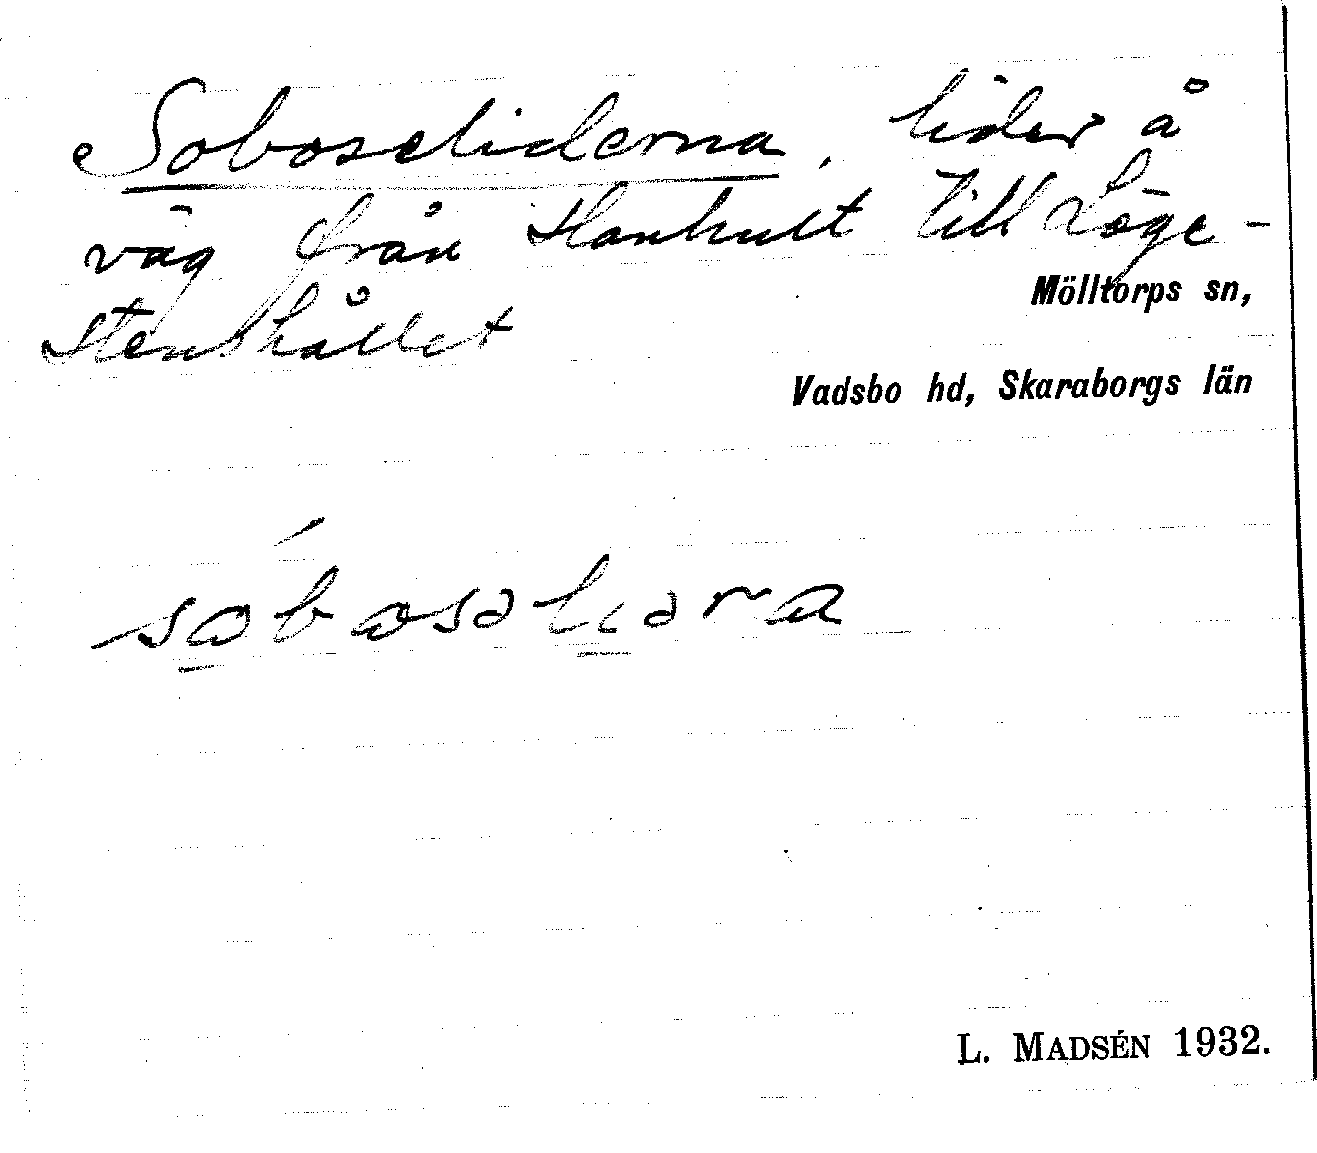 Soboseliderna, lider å
väg från Hanhult till Löge-
stenshållet
Mölltorps sn,
Vadsbo hd, Skaraborgs län
sóbosəliəra
L. MADSÉN 1932.